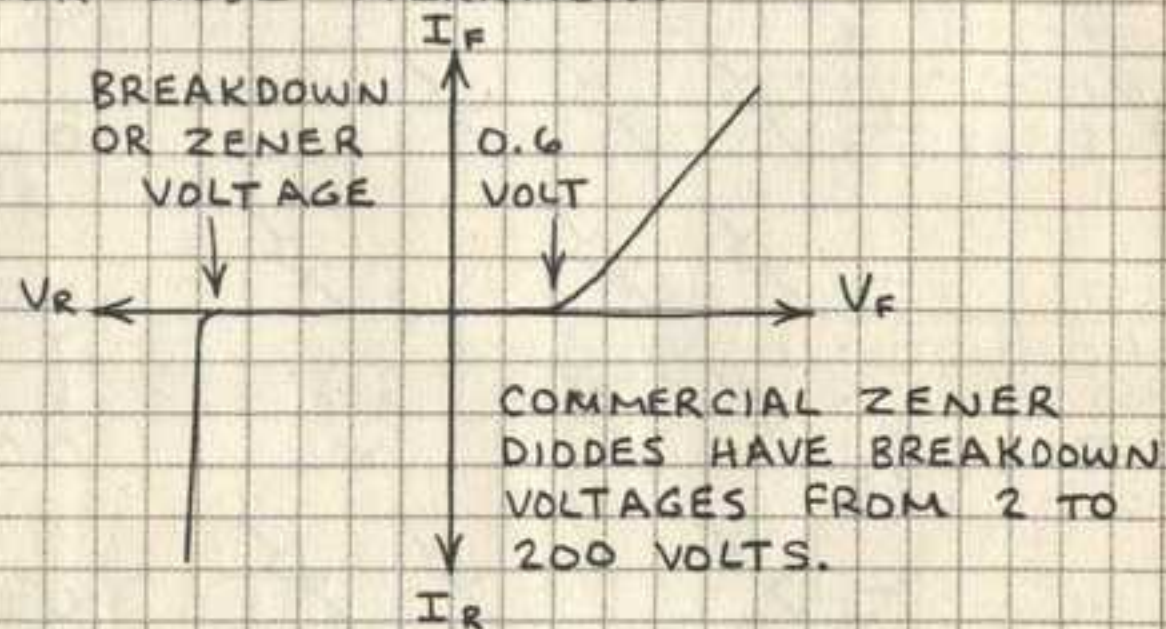 I F
BREAKDOWN
OR ZENER
VOLTAGE
0.6
VOLT
VR
VF
COMMERCIAL ZENER
DIODES HAVE BREAKDOWN
VOLTAGES FROM 2 TO
200 VOLTS.
I R